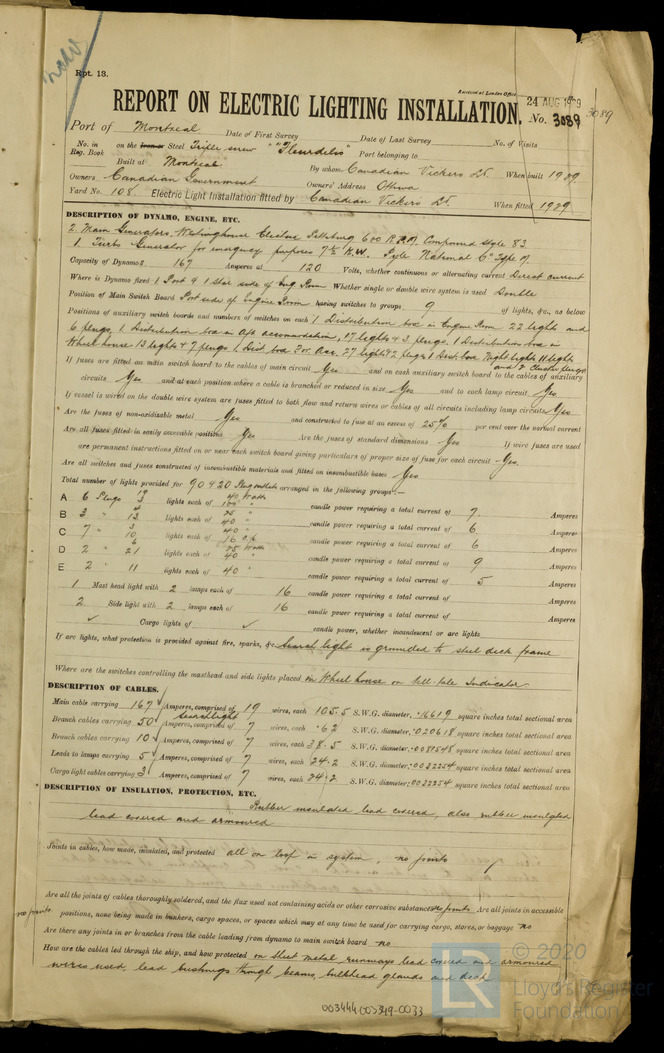 Rpt. 13.
Received at London Office
24 AUG 1929
REPORT ON ELECTRIC LIGHTING INSTALLATION. No. 3089
3089
Port of Montreal Date of First Survey Date of Last Survey No. of Visits
No. in Reg. Book on the Iron or Steel Triple screw "Fleurdelis" Port belonging to
Built at Montreal By whom Canadian Vickers Ld. When built 1929.
Owners Canadian Government Owners' Address Ottawa
Yard No. 108 Electric Light Installation fitted by Canadian Vickers Ld. When fitted 1929
DESCRIPTION OF DYNAMO, ENGINE, ETC.
2 Main Generators, Westinghouse Electric Pittsburg 600 R.P.M. Compound Style 83
1. Turbo Generator for emergency purposes 7½ K.W. Pyle National C" Type of.
Capacity of Dynamos 167 Amperes at 120 Volts, whether continuous or alternating current Direct current
Where is Dynamo fixed 1 Port & 1 Star side of Eng Room Whether single or double wire system is used Double
Position of Main Switch Board Port side of Engine Room having switches to groups 9 of lights, &c., as below
Positions of auxiliary switch boards and numbers of switches on each 1 Distribution box in Engine Room 22 lights and
6 plugs, 1 Distribution box in Aft accomodation, 17 lights & 3 plugs. 1 Distribution box in
Wheel house 13 lights & 7 plugs 1 Dist box For. Acc. 27 lights & 2 plugs 1 Dist. box Night lights 11 lights
and 2 Cluster plugs
If fuses are fitted on main switch board to the cables of main circuit Yes and on each auxiliary switch board to the cables of auxiliary
circuits Yes and at each position where a cable is branched or reduced in size Yes and to each lamp circuit Yes.
If vessel is wired on the double wire system are fuses fitted to both flow and return wires or cables of all circuits including lamp circuits Yes
Are the fuses of non-oxidizable metal Yes and constructed to fuse at an excess of 25% per cent over the normal current
Are all fuses fitted in easily accessible positions Yes Are the fuses of standard dimensions Yes If wire fuses are used
are permanent instructions fitted on or near each switch board giving particulars of proper size of fuse for each circuit Yes.
Are all switches and fuses constructed of incombustible materials and fitted on incombustible bases Yes
Total number of lights provided for 90 & 20 Plug outlets arranged in the following groups:—
A 6 Plugs 19 3 lights each of 40 Watt 100 " candle power requiring a total current of 7. Amperes
B 3 " 4 13 lights each of 25 " 40 " candle power requiring a total current of 6. Amperes
C 7 " 3 10 lights each of 40 " 16 C.P. candle power requiring a total current of 6 Amperes
D 2 " 6 21 lights each of 25 Watt 40 " candle power requiring a total current of 9 Amperes
E 2 " 11 lights each of 40 " candle power requiring a total current of 5 Amperes
1 Mast head light with 2 lamps each of 16 candle power requiring a total current of Amperes
2 Side light with 2 lamps each of 16 candle power requiring a total current of Amperes
✓ Cargo lights of ✓ candle power, whether incandescent or arc lights
If arc lights, what protection is provided against fire, sparks, &c. Search light is grounded to steel deck frame
Where are the switches controlling the masthead and side lights placed in Wheel house on tell-tale Indicator.
DESCRIPTION OF CABLES.
Main cable carrying 167 Amperes, comprised of 19 wires, each 105.5 S.W.G. diameter, .16619 square inches total sectional area
Searchlight
Branch cables carrying 50 Amperes, comprised of 7 wires, each .62 S.W.G. diameter, .020618 square inches total sectional area
Branch cables carrying 10 Amperes, comprised of 7 wires, each 38.5 S.W.G. diameter, .0081548 square inches total sectional area
Leads to lamps carrying 5 Amperes, comprised of 7 wires, each 24.2 S.W.G. diameter, .0032254 square inches total sectional area
Cargo light cables carrying 3 Amperes, comprised of 7 wires, each 24.2 S.W.G. diameter, .0032254 square inches total sectional area
DESCRIPTION OF INSULATION, PROTECTION, ETC.
Rubber insulated lead covered, also rubber insulated
lead covered and armoured
Joints in cables, how made, insulated, and protected all on loop in system, no joints
Are all the joints of cables thoroughly soldered, and the flux used not containing acids or other corrosive substances no joints Are all joints in accessible
no joints
positions, none being made in bunkers, cargo spaces, or spaces which may at any time be used for carrying cargo, stores, or baggage no
Are there any joints in or branches from the cable leading from dynamo to main switch board no
How are the cables led through the ship, and how protected on sheet metal runways lead covered and armoured
wires used, lead bushings through beams, bulkhead glands and deck.
© 2020
Lloyd's Register
Foundation
LR
003444-003349-0033